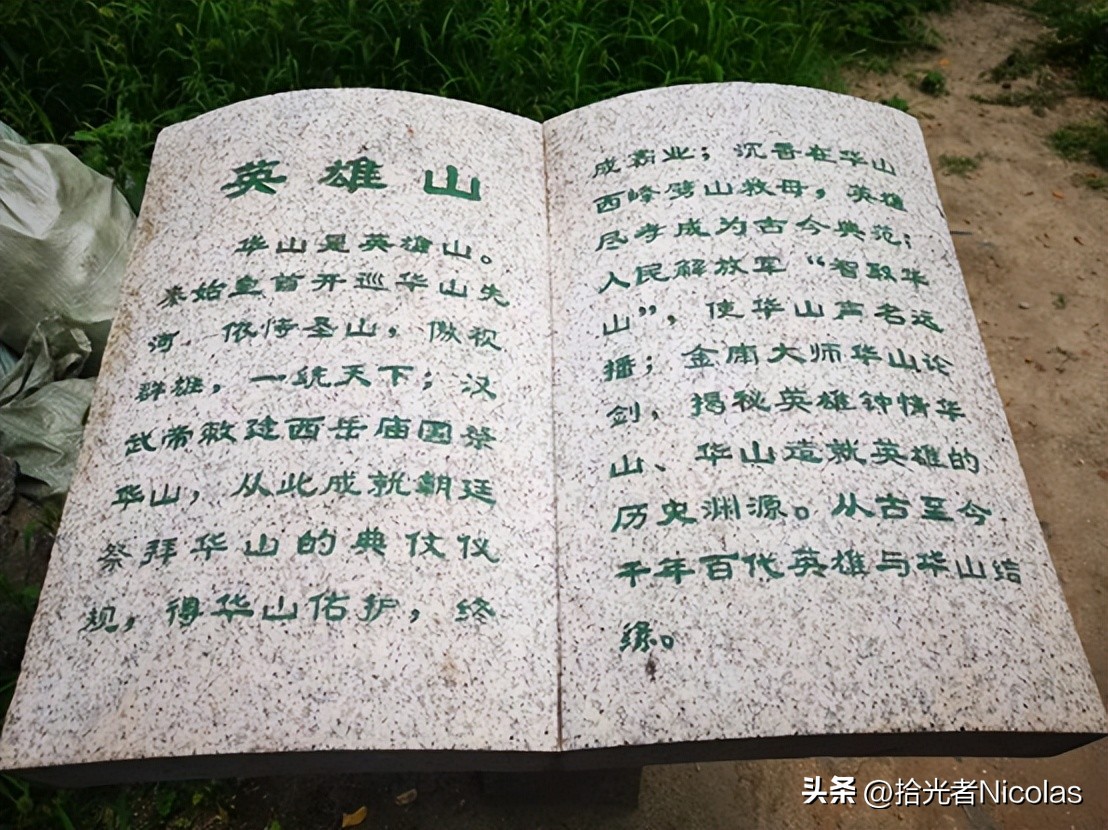 英雄山
华山是英雄山。
秦始皇首开巡华山先
河 依恃圣山，傲视
群雄，一统天下；汉
武帝敕建西岳庙国祭
华山，从此成就朝廷
祭拜华山的典仪仪
规，得华山佑护，终
成霸业；沉香在华山
西峰劈山救母，英雄
尽孝成为古今典范；
人民解放军“智取华
山”，使华山声名远
播；金庸大师华山论
剑，揭秘英雄钟情华
山、华山造就英雄的
历史渊源。从古至今
千年百代英雄与华山结
缘。
头条 @拾光者Nicolas